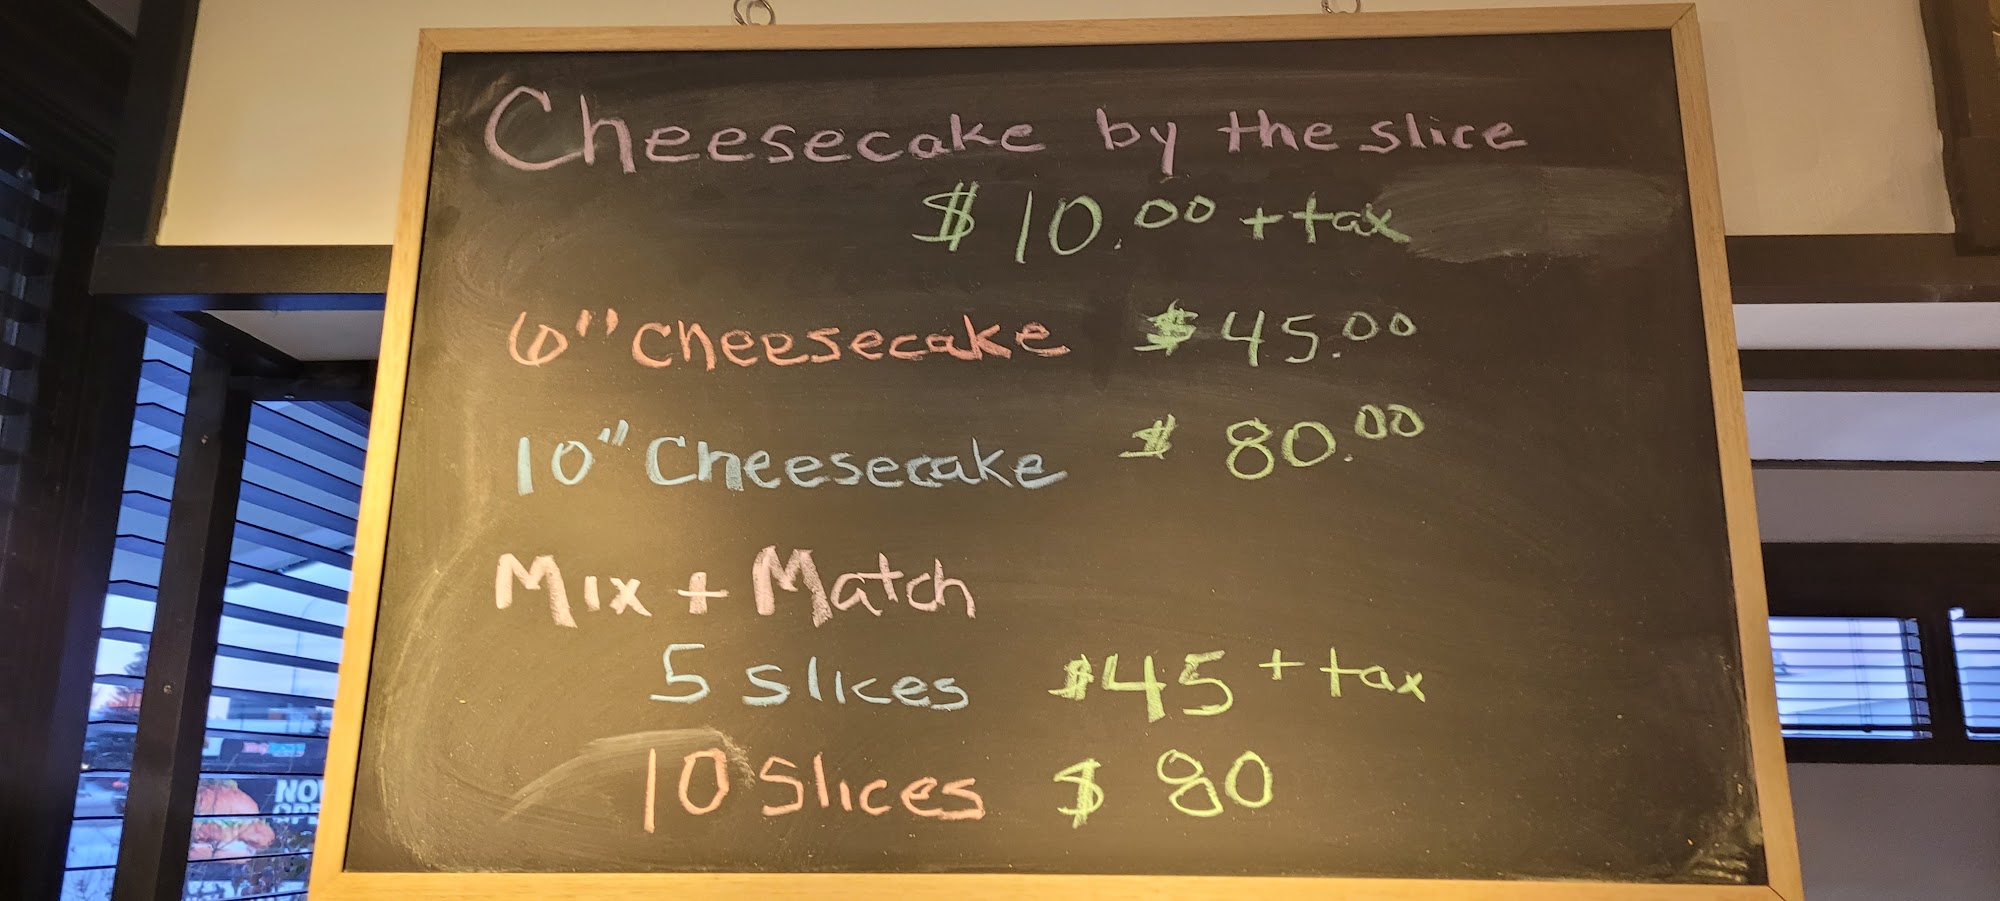 Cheesecake by the slice
$10.00 + tax
6" Cheesecake $45.00
10" Cheesecake $80.00
Mix + Match
5 slices $45 + tax
10 Slices $80